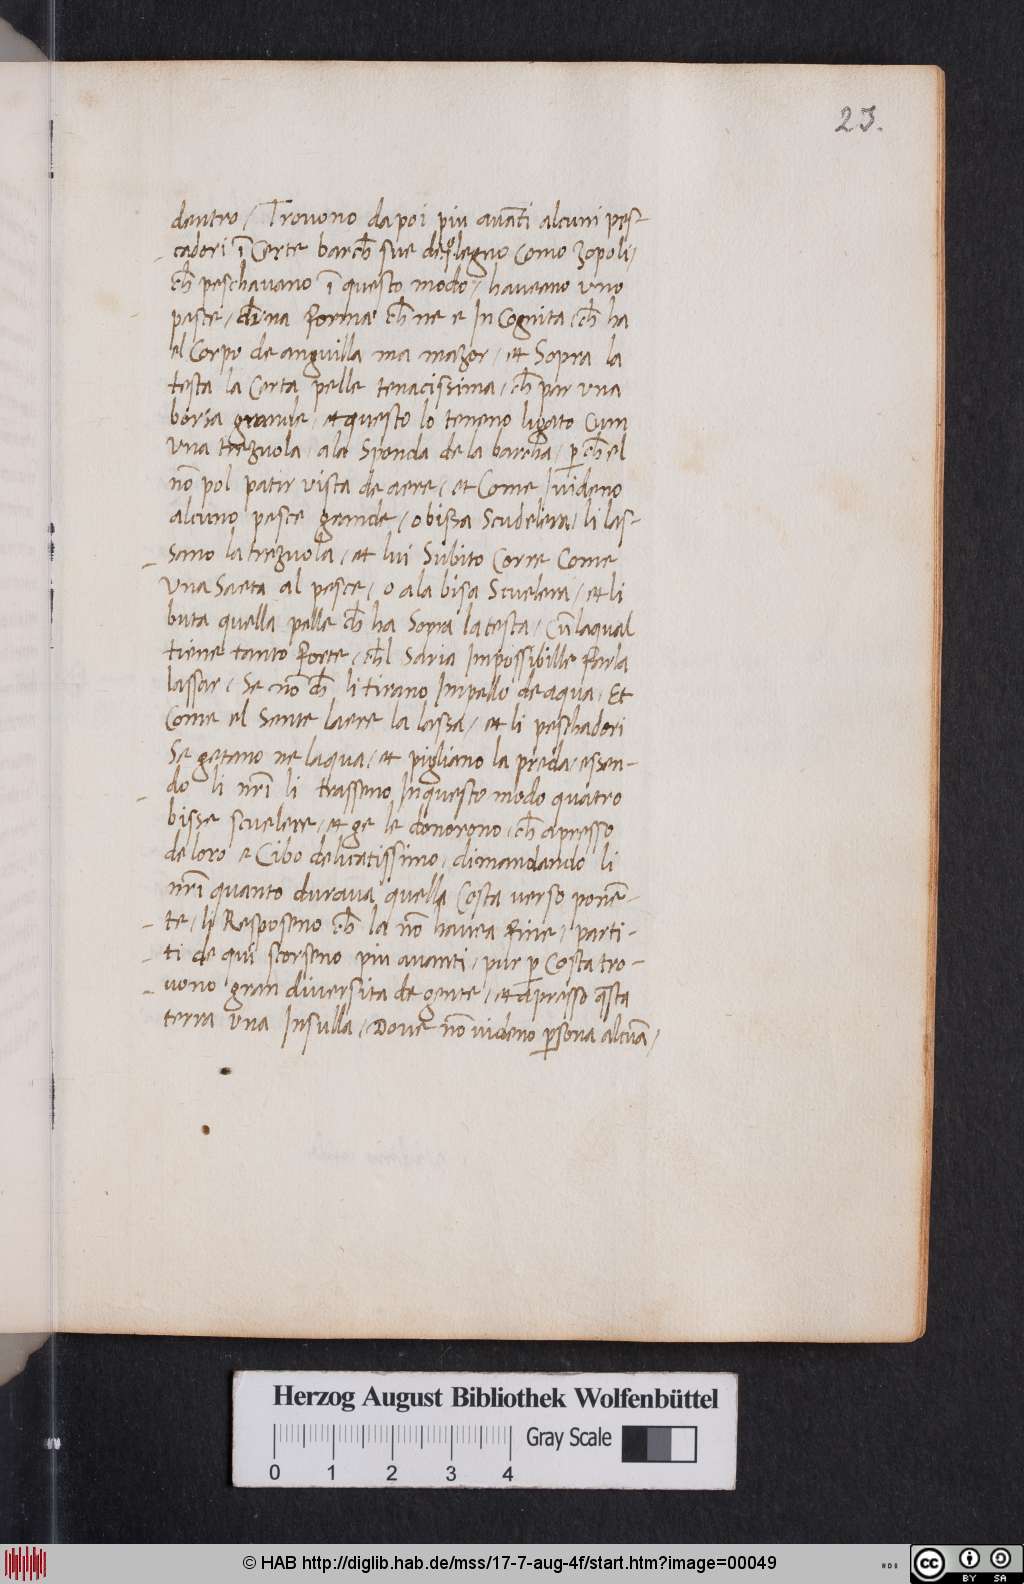 23.
dentro / Trovono da poi piu auāti alcuni pes-
cadori ī Certe barch̄ sue de legno Como Zopoli /
ch̄ peschauano ī questo modo / haueano vno
pesce / di una forma ch̄ ne e InCognita / ch̄ ha
el Corpo de anguilla ma mazor / et Sopra la
testa la Certa pelle tenacissima / ch̄ par vna
borsa grande / et questo lo teneno ligato Cum
vna trezuola / ala Sponda de la barcha / p̱ ch̄ el
nō pol patir vista de aere / et Come / uideno
alcuno pesce grande / o bissa Scudelera / li las-
sano la trezuola / et lui Subito Corre Come
vna Saeta al pesce / o ala bisa Scuelera / et li
buta quella palle ch̄ ha Sopra la testa / Cū laqual
tiene tanto Forte / ch̄l Saria Impossibille Farla
lassar / Se nō ch̄ li tirano Impello de aqua / Et
Come el Sente laere la lassa / et li peschadori
Se getano ne laqua / et pigliano la preda / essen-
do li nr̄i li trasseno Inquesto modo quatro
bisse scuelere / et ge le donorono / ch̄ apresso
de loro e Cibo delicatissimo / dimandando li
nr̄i quanto duraua quella Costa verso ponē-
te / li Resposeno ch̄ la nō hauea Fine / parti-
ti de qui scorseno piu auanti / pur p̱ Costa tro-
uono gran diuersita de gente / et apresso q̄sta
terra vna Insulla / Doue nō uideno p̱sona alcuā /
Herzog August Bibliothek Wolfenbüttel
Gray Scale
0 1 2 3 4
© HAB http://diglib.hab.de/mss/17-7-aug-4f/start.htm?image=00049
cc BY SA